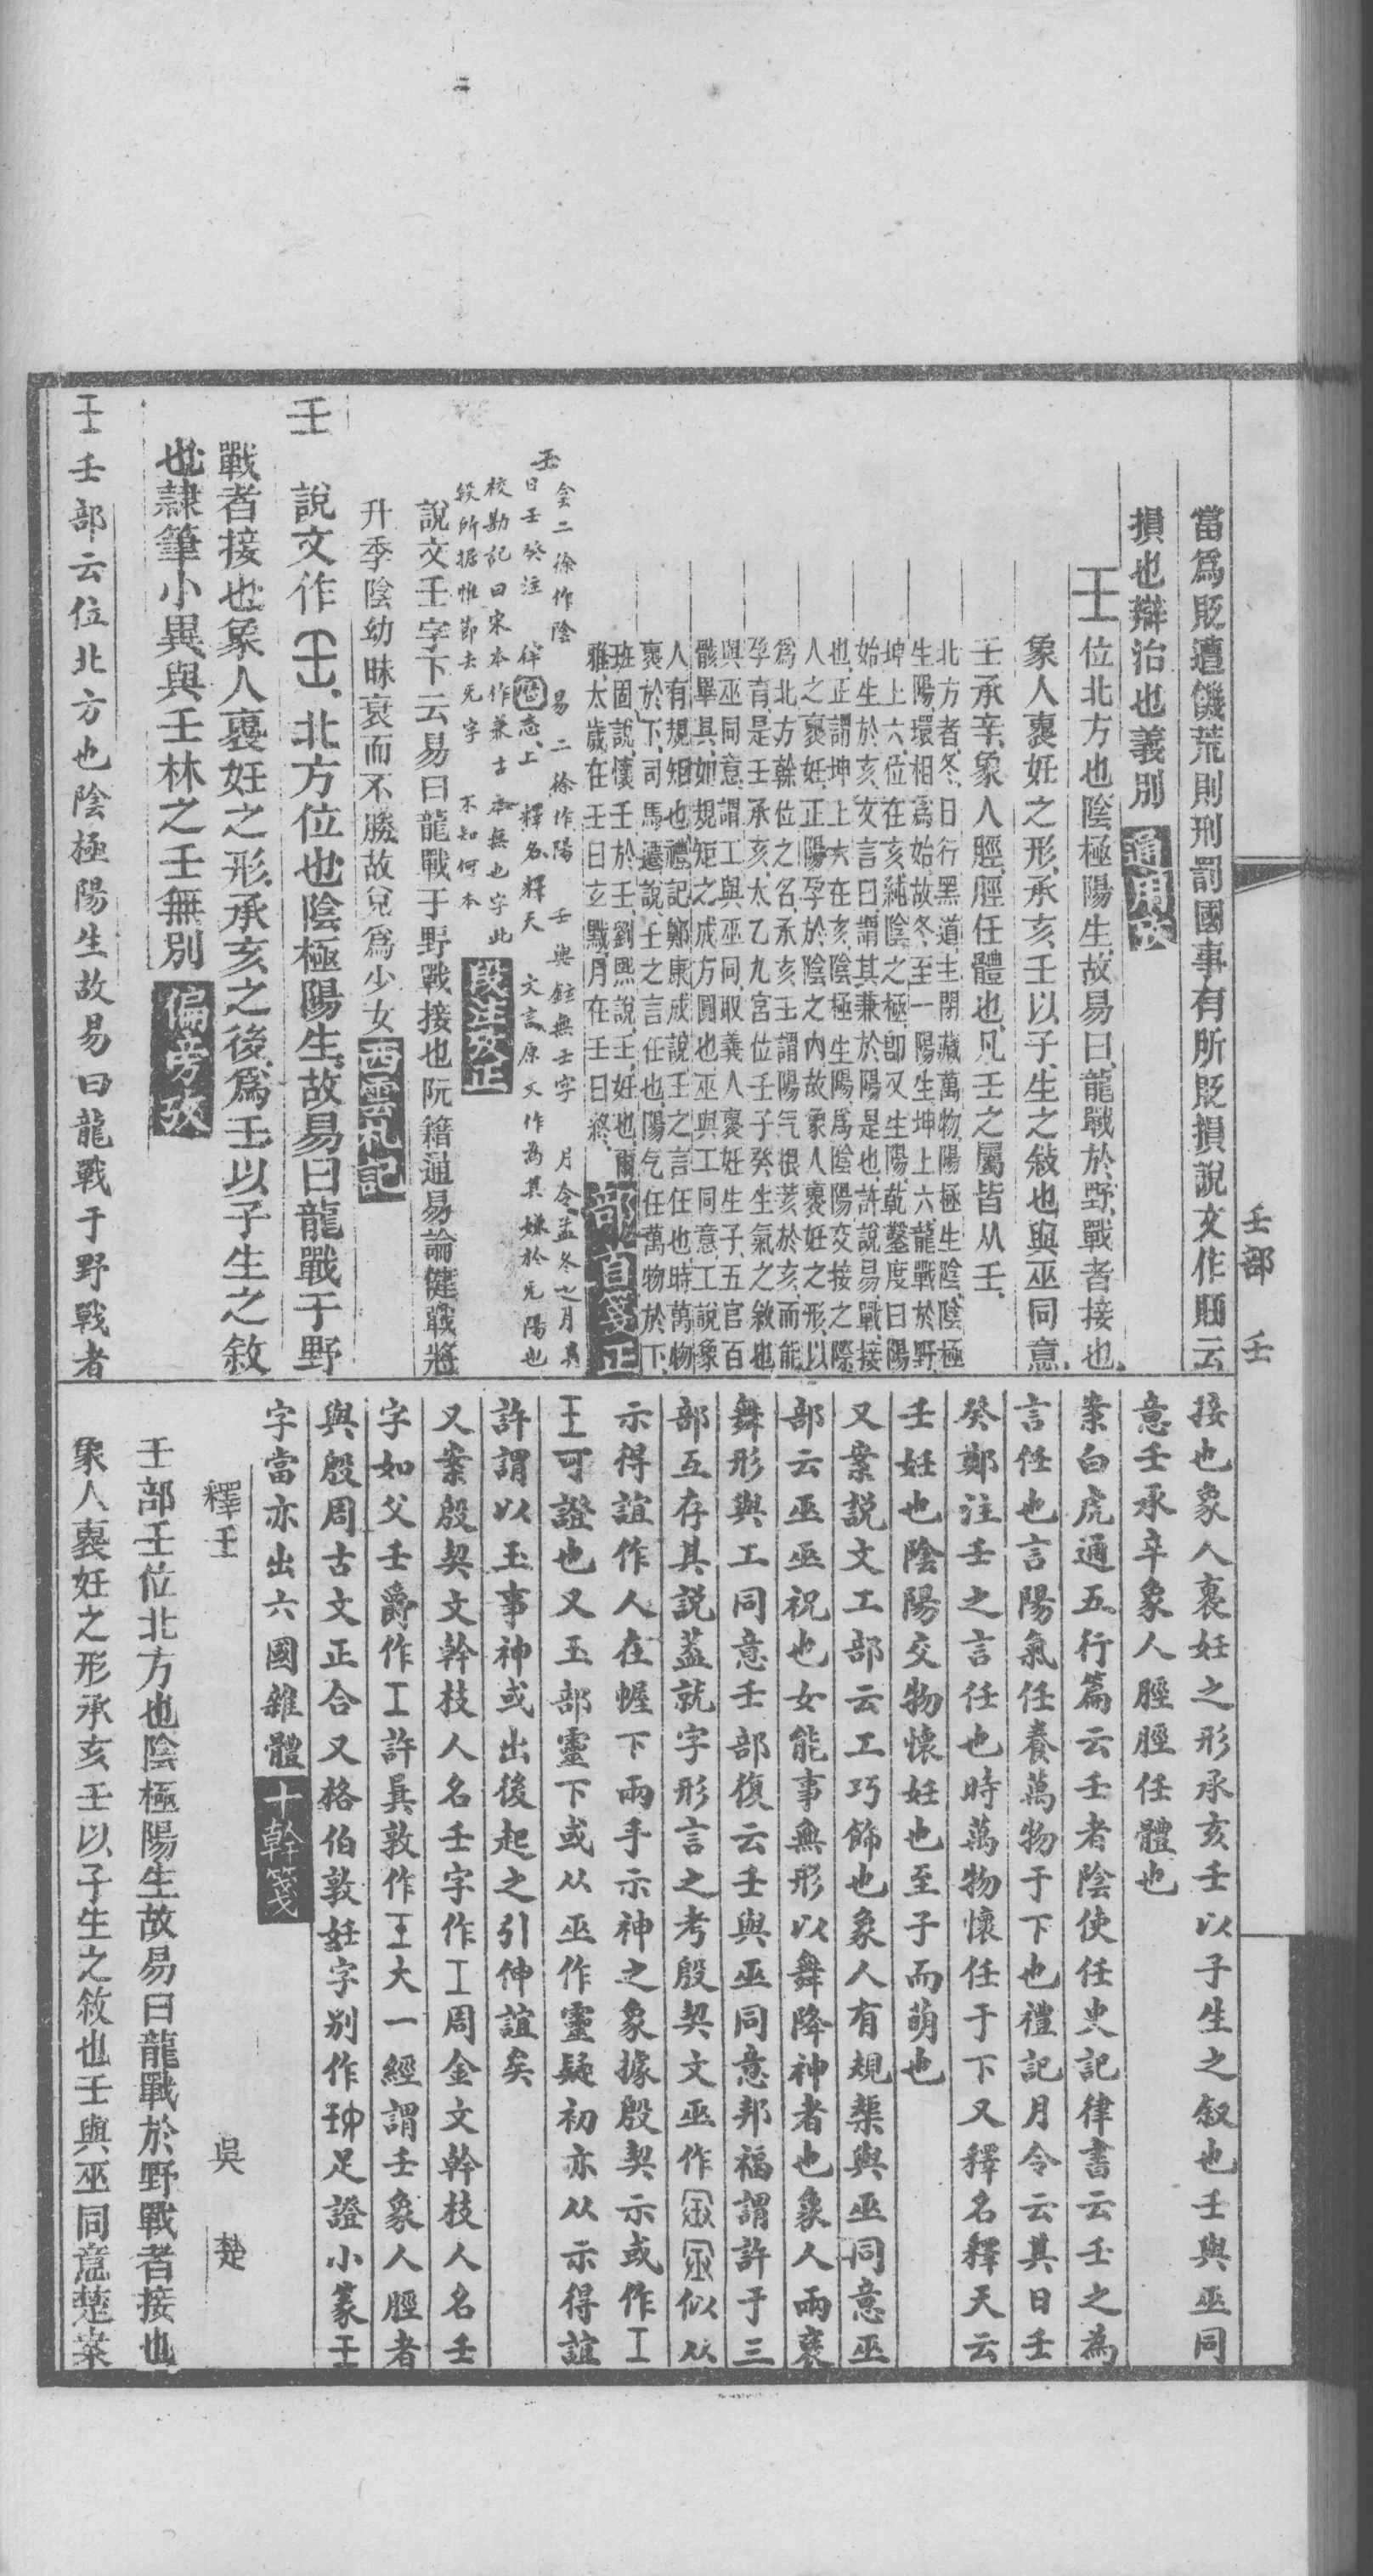 壬部　壬
當爲貶遭饑荒則刑罰國事有所貶損說文作貶云
損也辯治也義別
通用文
壬位北方也陰極陽生故易曰龍戰於野戰者接也
象人裹妊之形承亥壬以子生之敍也與巫同意
壬承辛象人脛脛任體也凡壬之屬皆从壬
北方者冬日行黑道主閉藏萬物陽極生陰陰極
生陽環相爲始故冬至一陽生坤上六龍戰於野
坤上六位在亥純陰之極卽又生陽乾鑿度曰陽
始生於亥文言曰謂其兼於陽是也許說易戰接
也正謂坤上六在亥陰極生陽爲陰陽交接之際
人之裹妊正陽孕於陰之內故象人裹妊之形以
爲北方榦位之名承亥壬謂陽气根荄於亥而能
孕育是壬承亥太乙九宮位壬子癸生氣之敘也
與巫同意謂工與巫同取義人裹妊生子五官百
骸畢具如規矩之成方圓也巫與工同意工說象
人有規矩也禮記鄭康成說壬之言任也時萬物
裹於下司馬遷說壬之言任也陽气任萬物於下
班固說懷壬於壬劉熙說壬妊也爾
雅太歲在壬曰玄黓月在壬曰終
部首箋正
侌二徐作陰　昜二徐作陽　壬與䤵無士字　月令孟冬之月其
日壬癸注　上　釋名釋天　文言原文作爲其嫌於无陽也
校勘記曰宋本作兼古本無也字此
段所据惟節去无字　不知何本
段注攷正
說文壬字下云易曰龍戰于野戰接也阮籍通易論健戰將
升季陰幼昧衰而不勝故兌爲少女
西雲札記
壬　說文作　北方位也陰極陽生故易曰龍戰于野
戰者接也象人裹妊之形承亥之後爲壬以子生之敘
也隷筆小異與壬林之壬無別
偏旁攷
壬壬部云位北方也陰極陽生故易曰龍戰于野戰者
接也象人裹妊之形承亥壬以子生之敘也壬與巫同
意壬承辛象人脛脛任體也
案白虎通五行篇云壬者陰使任史記律書云壬之為
言任也言陽氣任養萬物于下也禮記月令云其日壬
癸鄭注壬之言任也時萬物懷任于下又釋名釋天云
壬妊也陰陽交物懷妊也至子而萌也
又案説文工部云工巧飾也象人有規榘與巫同意巫
部云巫巫祝也女能事無形以舞降神者也象人兩褎
舞形與工同意壬部復云壬與巫同意邦福謂許于三
部互存其説葢就字形言之考殷契文巫作　　似从
示得誼作人在幄下兩手示神之象據殷契示或作工
王可證也又玉部靈下或从巫作靈疑初亦从示得誼
許謂以玉事神或出後起之引伸誼矣
又案殷契文幹枝人名壬字作工周金文幹枝人名壬
字如父壬爵作工許㠱敦作王大一經謂壬象人脛者
與殷周古文正合又格伯敦妊字别作　足證小篆壬
字當亦出六國雜體
十幹箋
釋壬　　吳楚
壬部壬位北方也陰極陽生故易曰龍戰於野戰者接也
象人裹妊之形承亥壬以子生之敘也壬與巫同意楚案